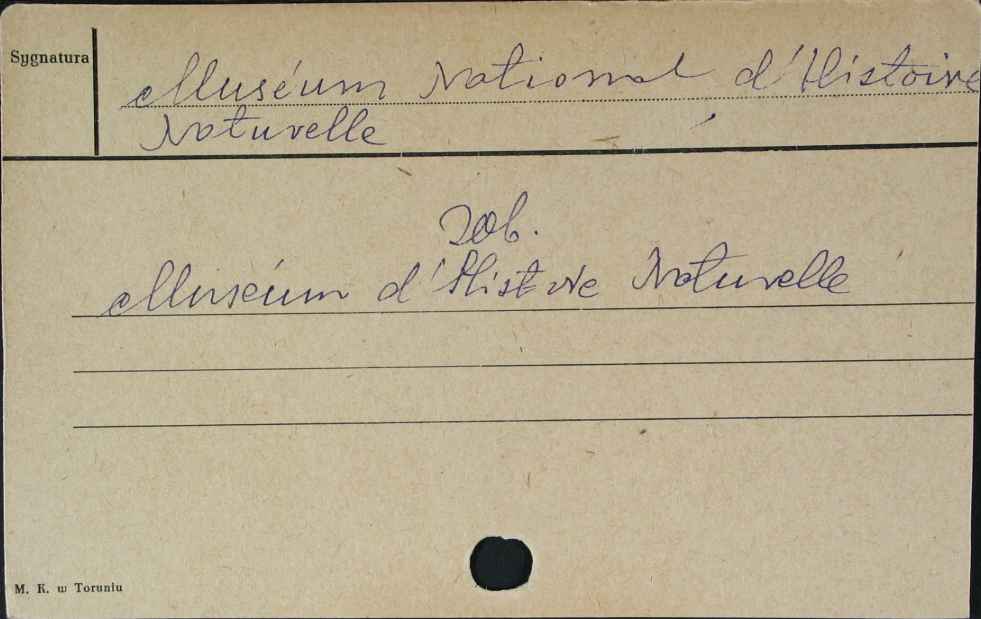 Sygnatura
Muséum National d'Histoire
Naturelle
zob.
Muséum d'Histoire Naturelle
M. K. w Toruniu